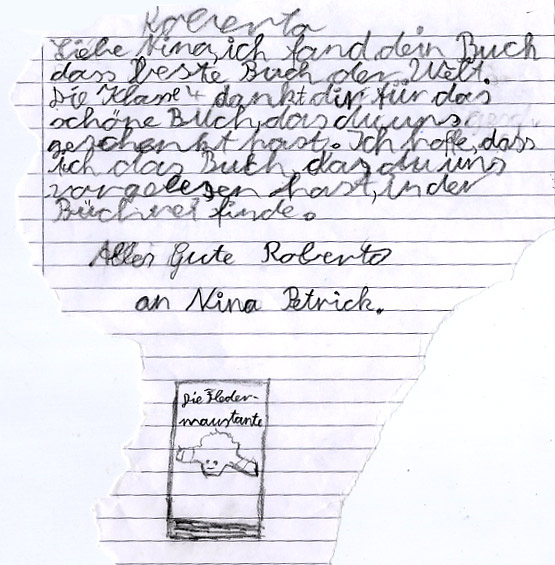 Roberto
Liebe Nina, ich fand dein Buch
dass beste Buch der Welt.
Die Klasse 4 dankt dir für das
schöne Buch, das du uns
geschenkt hast. Ich hoffe, dass
ich das Buch, das du uns
vorgelesen hast, in der
Bücherei finde.
Alles Gute Roberto
an Nina Petrick.
Die Fleder-
maustante